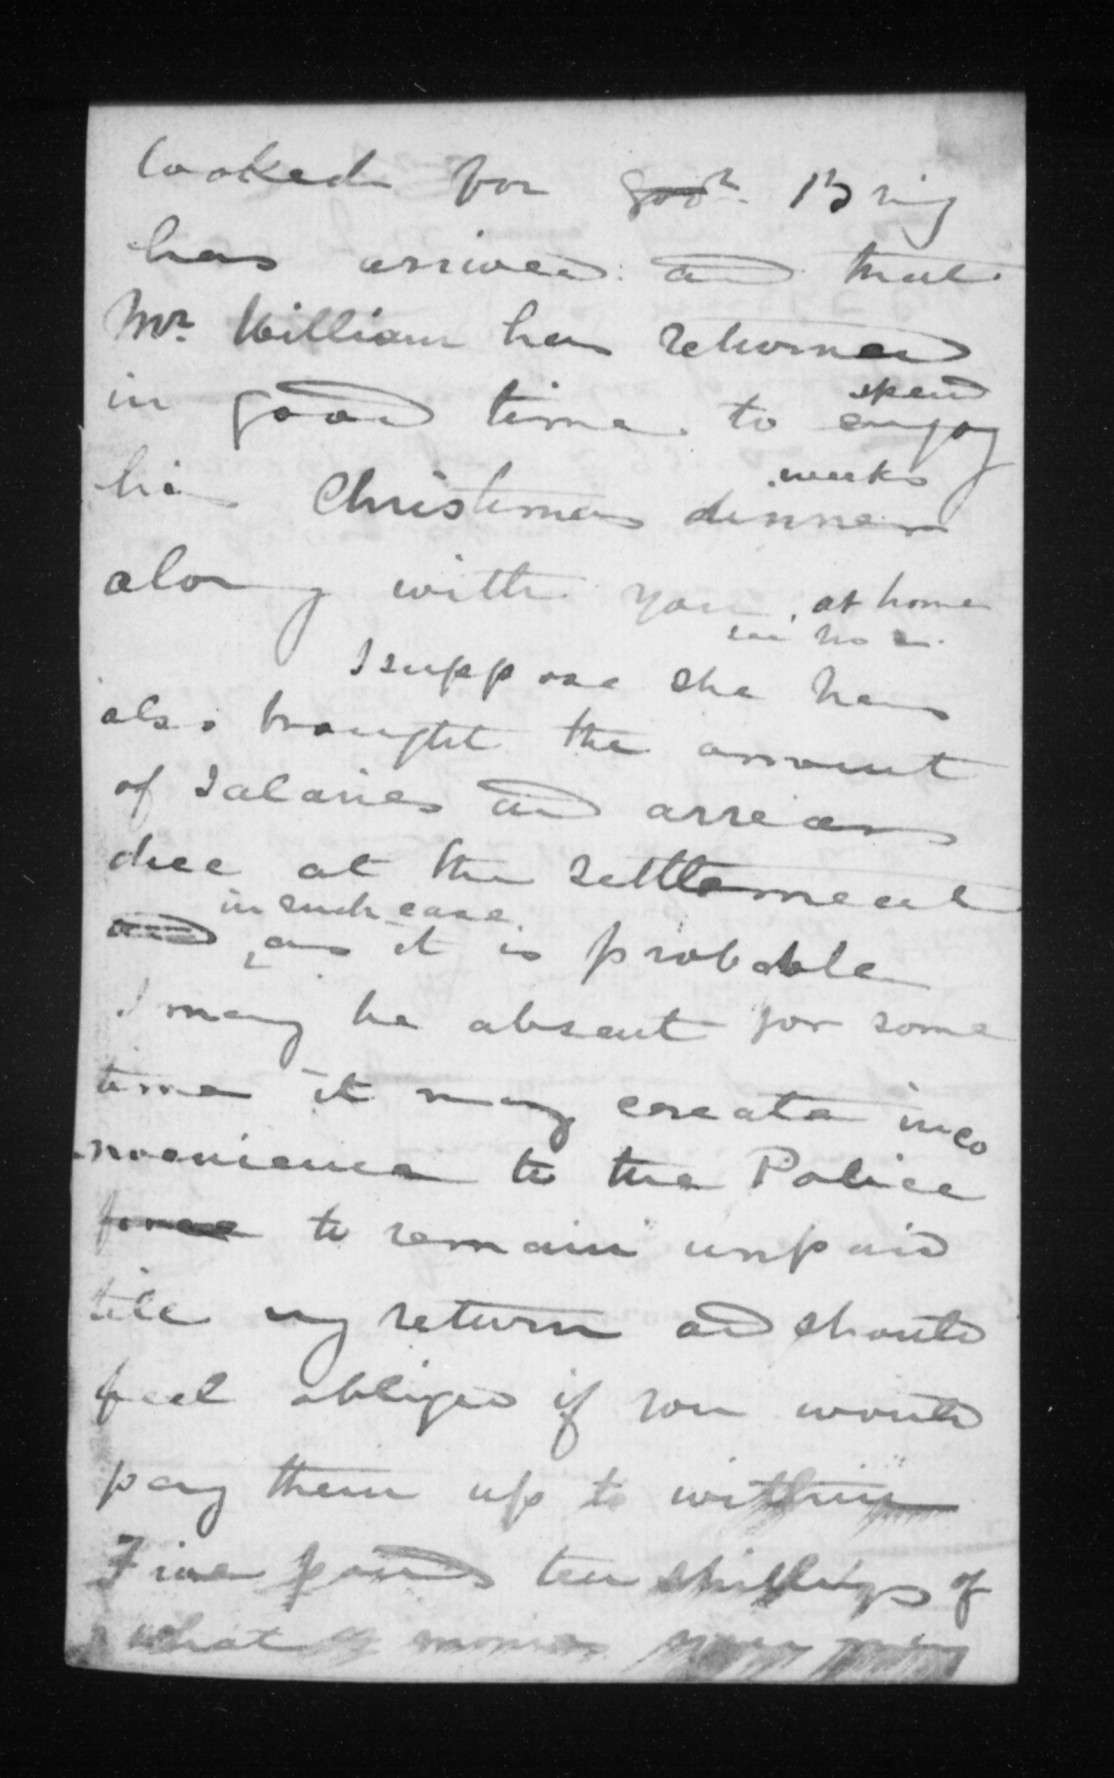 looked for Govt. Brig
has arrived and that
Mr. William has returned
in good time to enjoy
spend
his Christmas dinner
weeks
along with you at home
I suppose she has
also brought the amount
of salaries and arrears
due at the settlement
in such case
and as it is probable
I may be absent for some
time it may create inco
nvenience to the Police
force to remain unpaid
till my return and should
feel obliged if you would
pay them up to within
Five pounds ten shillings of
what monies